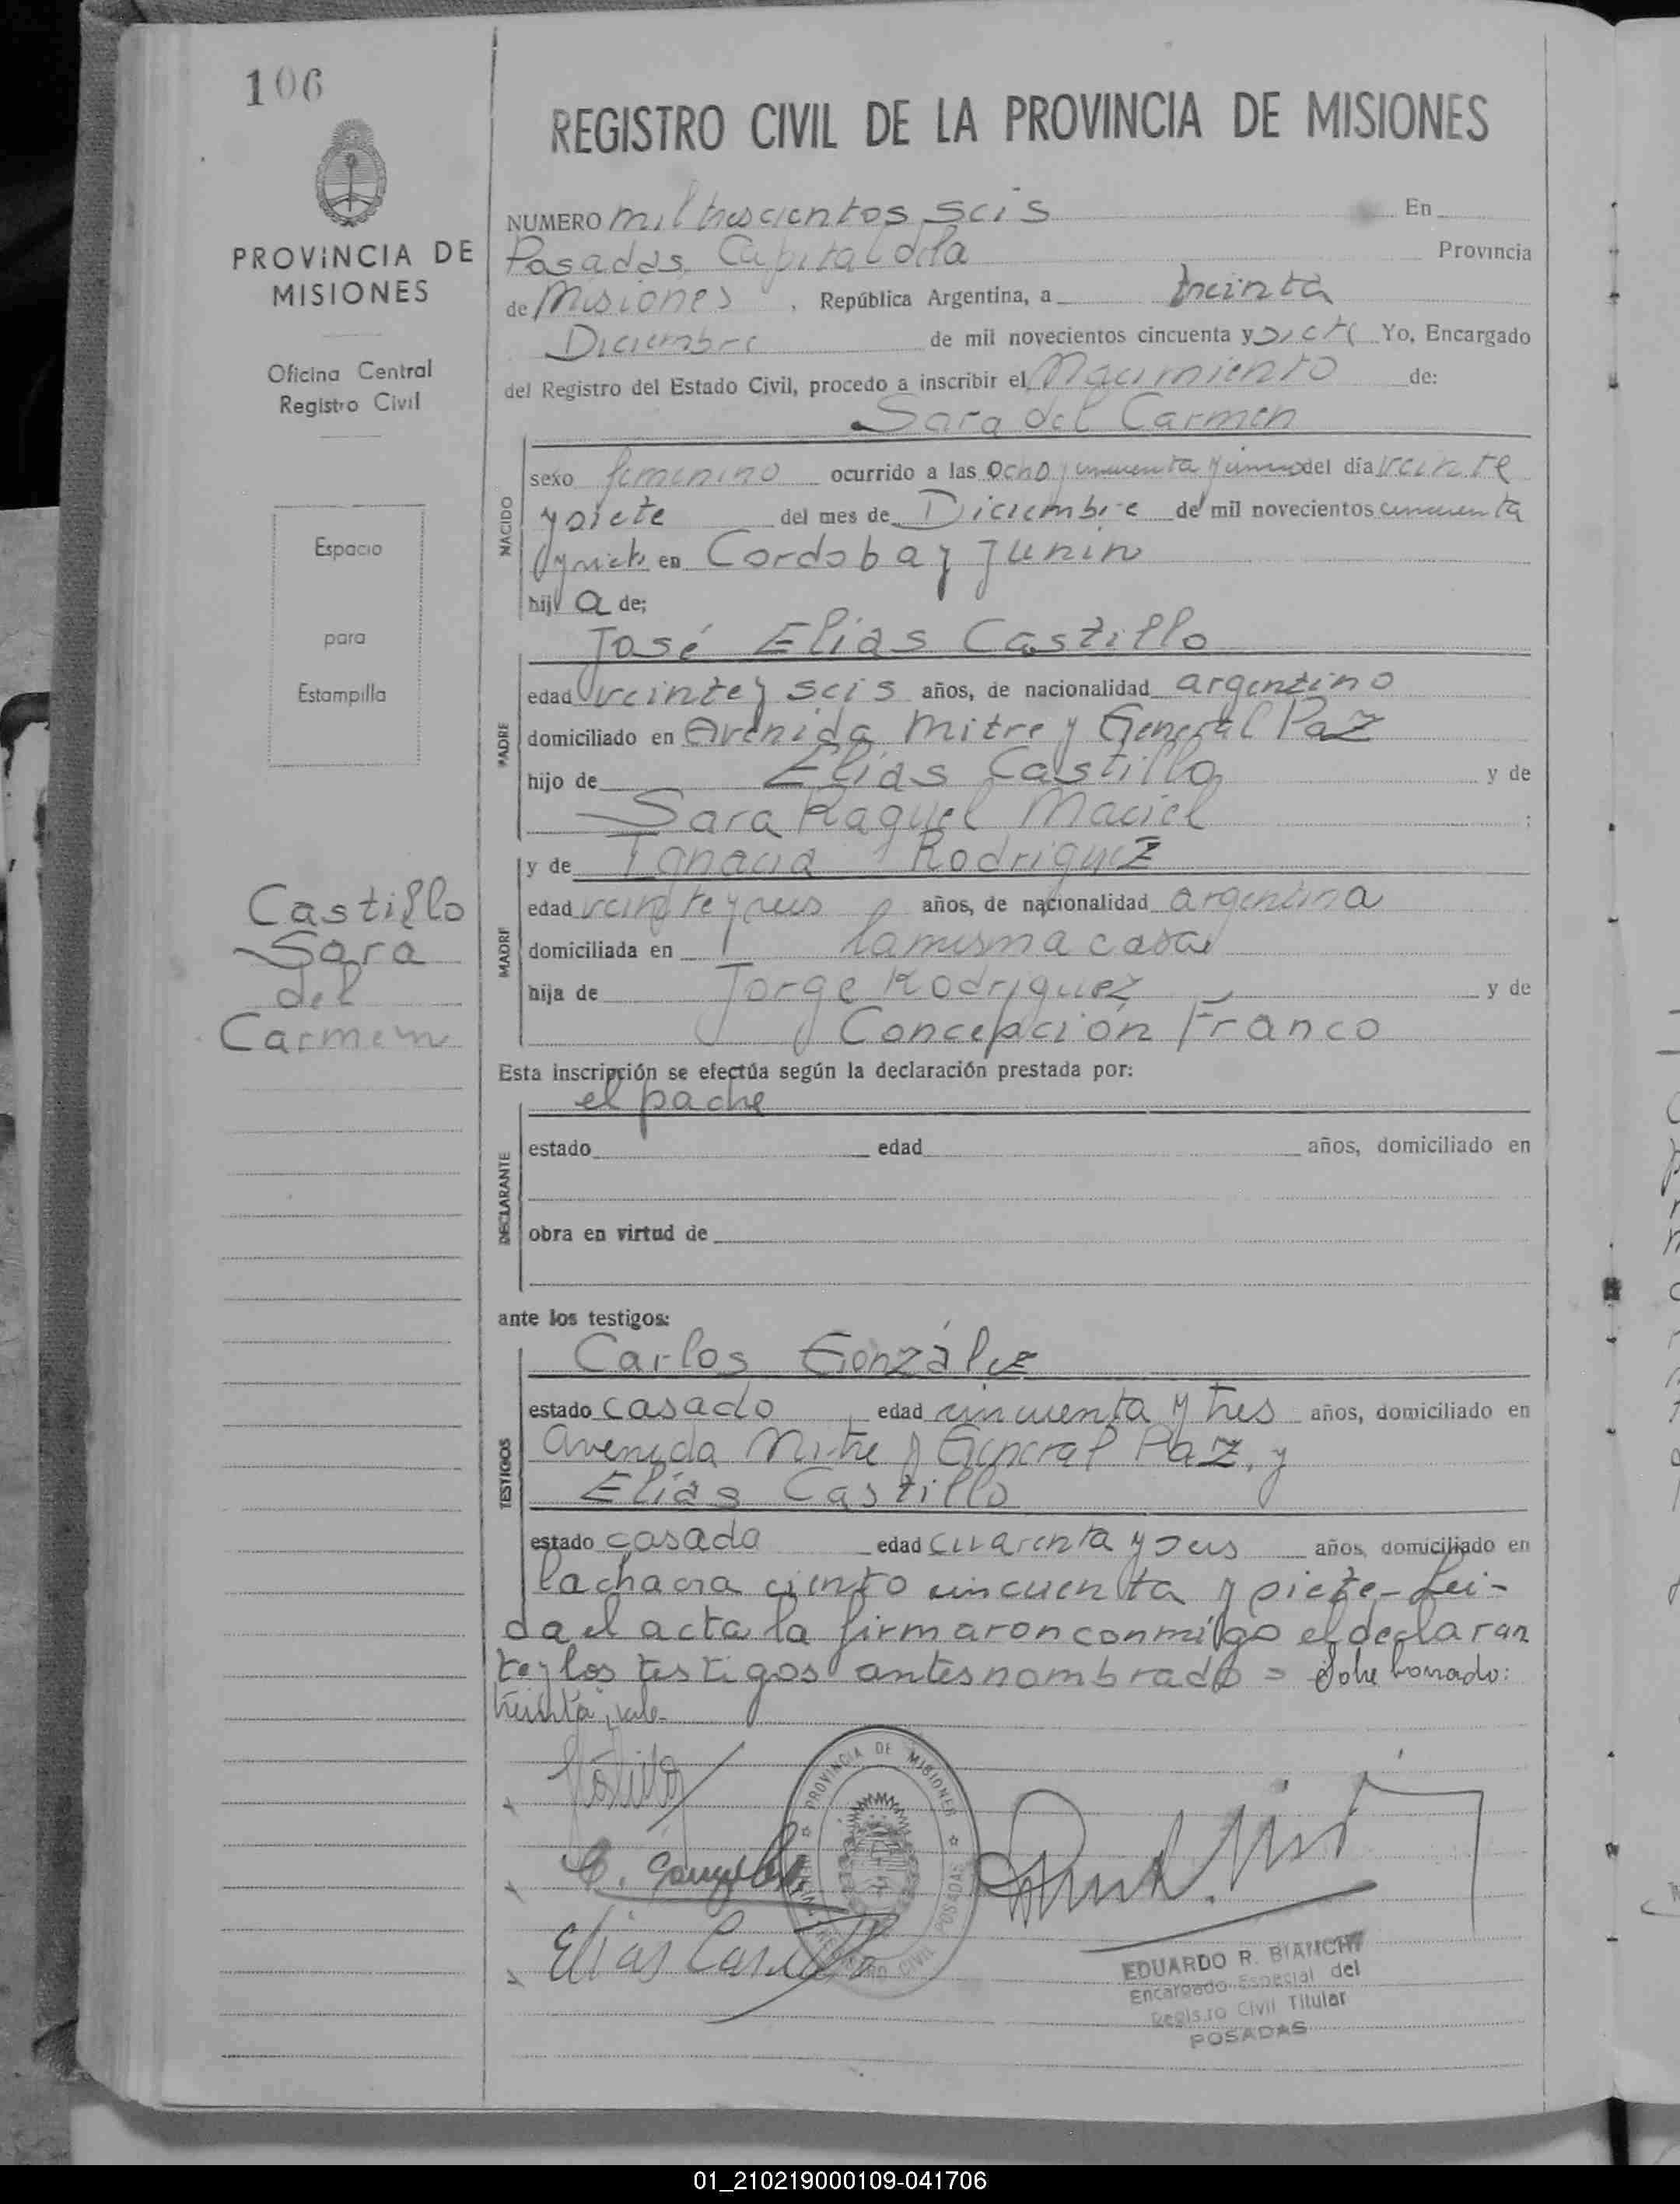 106
PROVINCIA DE
MISIONES
Oficina Central
Registro Civil
Espacio
para
Estampilla
Castillo
Sara
del
Carmen
REGISTRO CIVIL DE LA PROVINCIA DE MISIONES
NUMERO mil trescientos seis En
Posadas, Capital de la Provincia
de Misiones, República Argentina, a treinta
Diciembre de mil novecientos cincuenta y siete Yo, Encargado
del Registro del Estado Civil, procedo a inscribir el Nacimiento de:
Sara del Carmen
NACIDO
sexo femenino ocurrido a las ocho y cincuenta y cinco del día veinte
y siete del mes de Diciembre de mil novecientos cincuenta
y siete en Cordoba y Junin
hij a de;
José Elias Castillo
PADRE
edad veinte y seis años, de nacionalidad argentino
domiciliado en Avenida Mitre y General Paz
hijo de Elías Castillo y de
Sara Raquel Maciel ;
y de Ignacia Rodriguez
MADRE
edad veinte y seis años, de nacionalidad argentina
domiciliada en la misma casa
hija de Jorge Rodriguez y de
Concepción Franco
Esta inscripción se efectúa según la declaración prestada por:
el padre
DECLARANTE
estado edad años, domiciliado en
obra en virtud de
ante los testigos:
Carlos González
TESTIGOS
estado casado edad cincuenta y tres años, domiciliado en
avenida Mitre y General Paz, y
Elías Castillo
estado casado edad cuarenta y seis años, domiciliado en
la chacra ciento cincuenta y siete- Lei-
da el acta la firmaron conmigo el declaran
te y los testigos antes nombrado = Sobre borrado:
treinta, vale-
Castillo
C. Gonzalez
Elias Castillo
PROVINCIA DE MISIONES
REGISTRO CIVIL POSADAS
EDUARDO R. BIANCHI
Encargado Especial del
Registro Civil Titular
POSADAS
01_210219000109-041706